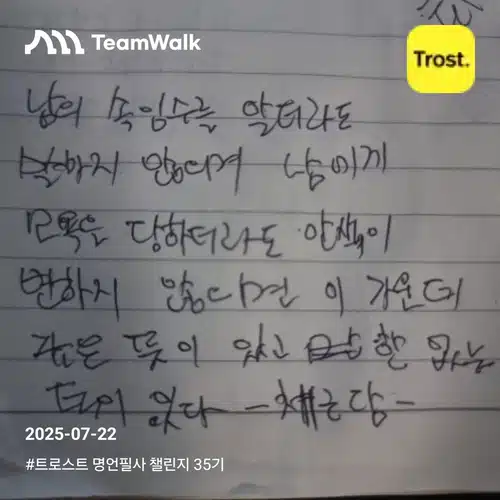 TeamWalk
Trost.
남의 속임수를 알더라도
말하지 않는다면 남에게
모욕을 당하더라도 안색이
변하지 않는다면 이 가운데
깊은 뜻이 있고 한 없는
덕이 있다 -채근담-
2025-07-22
#트로스트 명언필사 챌린지 35기